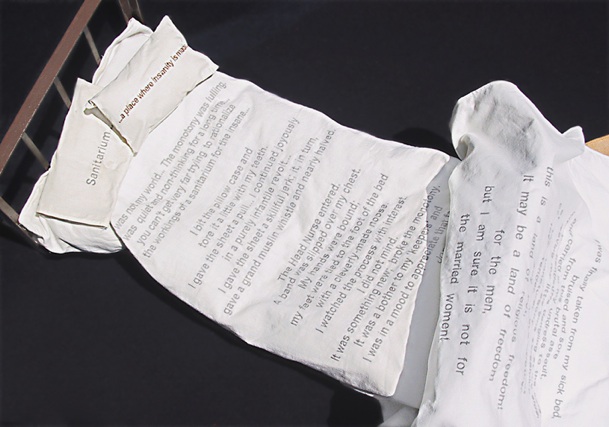 Sanitarium
...a place where insanity is made
was not my world... The monotony was lulling.
was quieted non-thinking for a long time...
you can't get very far trying to rationalize
the workings of a sanitarium for the insane...
I bit the pillow case and
tore it a little with my teeth.
I gave the sheet a pull... I continued joyously
in a purely infantile revolt...
I gave the sheet a skillful jerk; it, in turn,
gave a grand music, whistle and nearly halved.
The Head Nurse entered.
A band was slipped over my chest.
My hands were bound;
my feet were tied to the foot of the bed
with a cleverly made noose.
I watched the process with interest.
I did not mind.
It was something new; it broke the monotony.
It was a bother to my 'keepers' and
I was in a mood to appreciate that
this is a land of religious freedom
It may be a land of freedom
for the men,
but I am sure it is not for
the married women!
was falsely taken from my sick bed,
bruised and sore